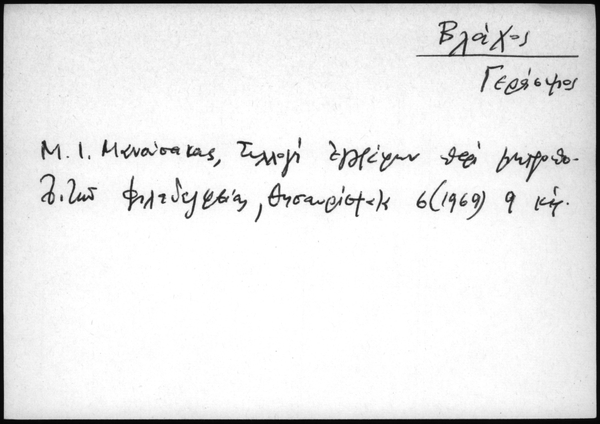 Βλάχος
Γεράσιμος
Μ. Ι. Μανούσακας, Συλλογή ἐγγράφων περί μητροπο-
λιτῶν Φιλαδελφείας, Θησαυρίσματα 6 (1969) 9 κἑ.